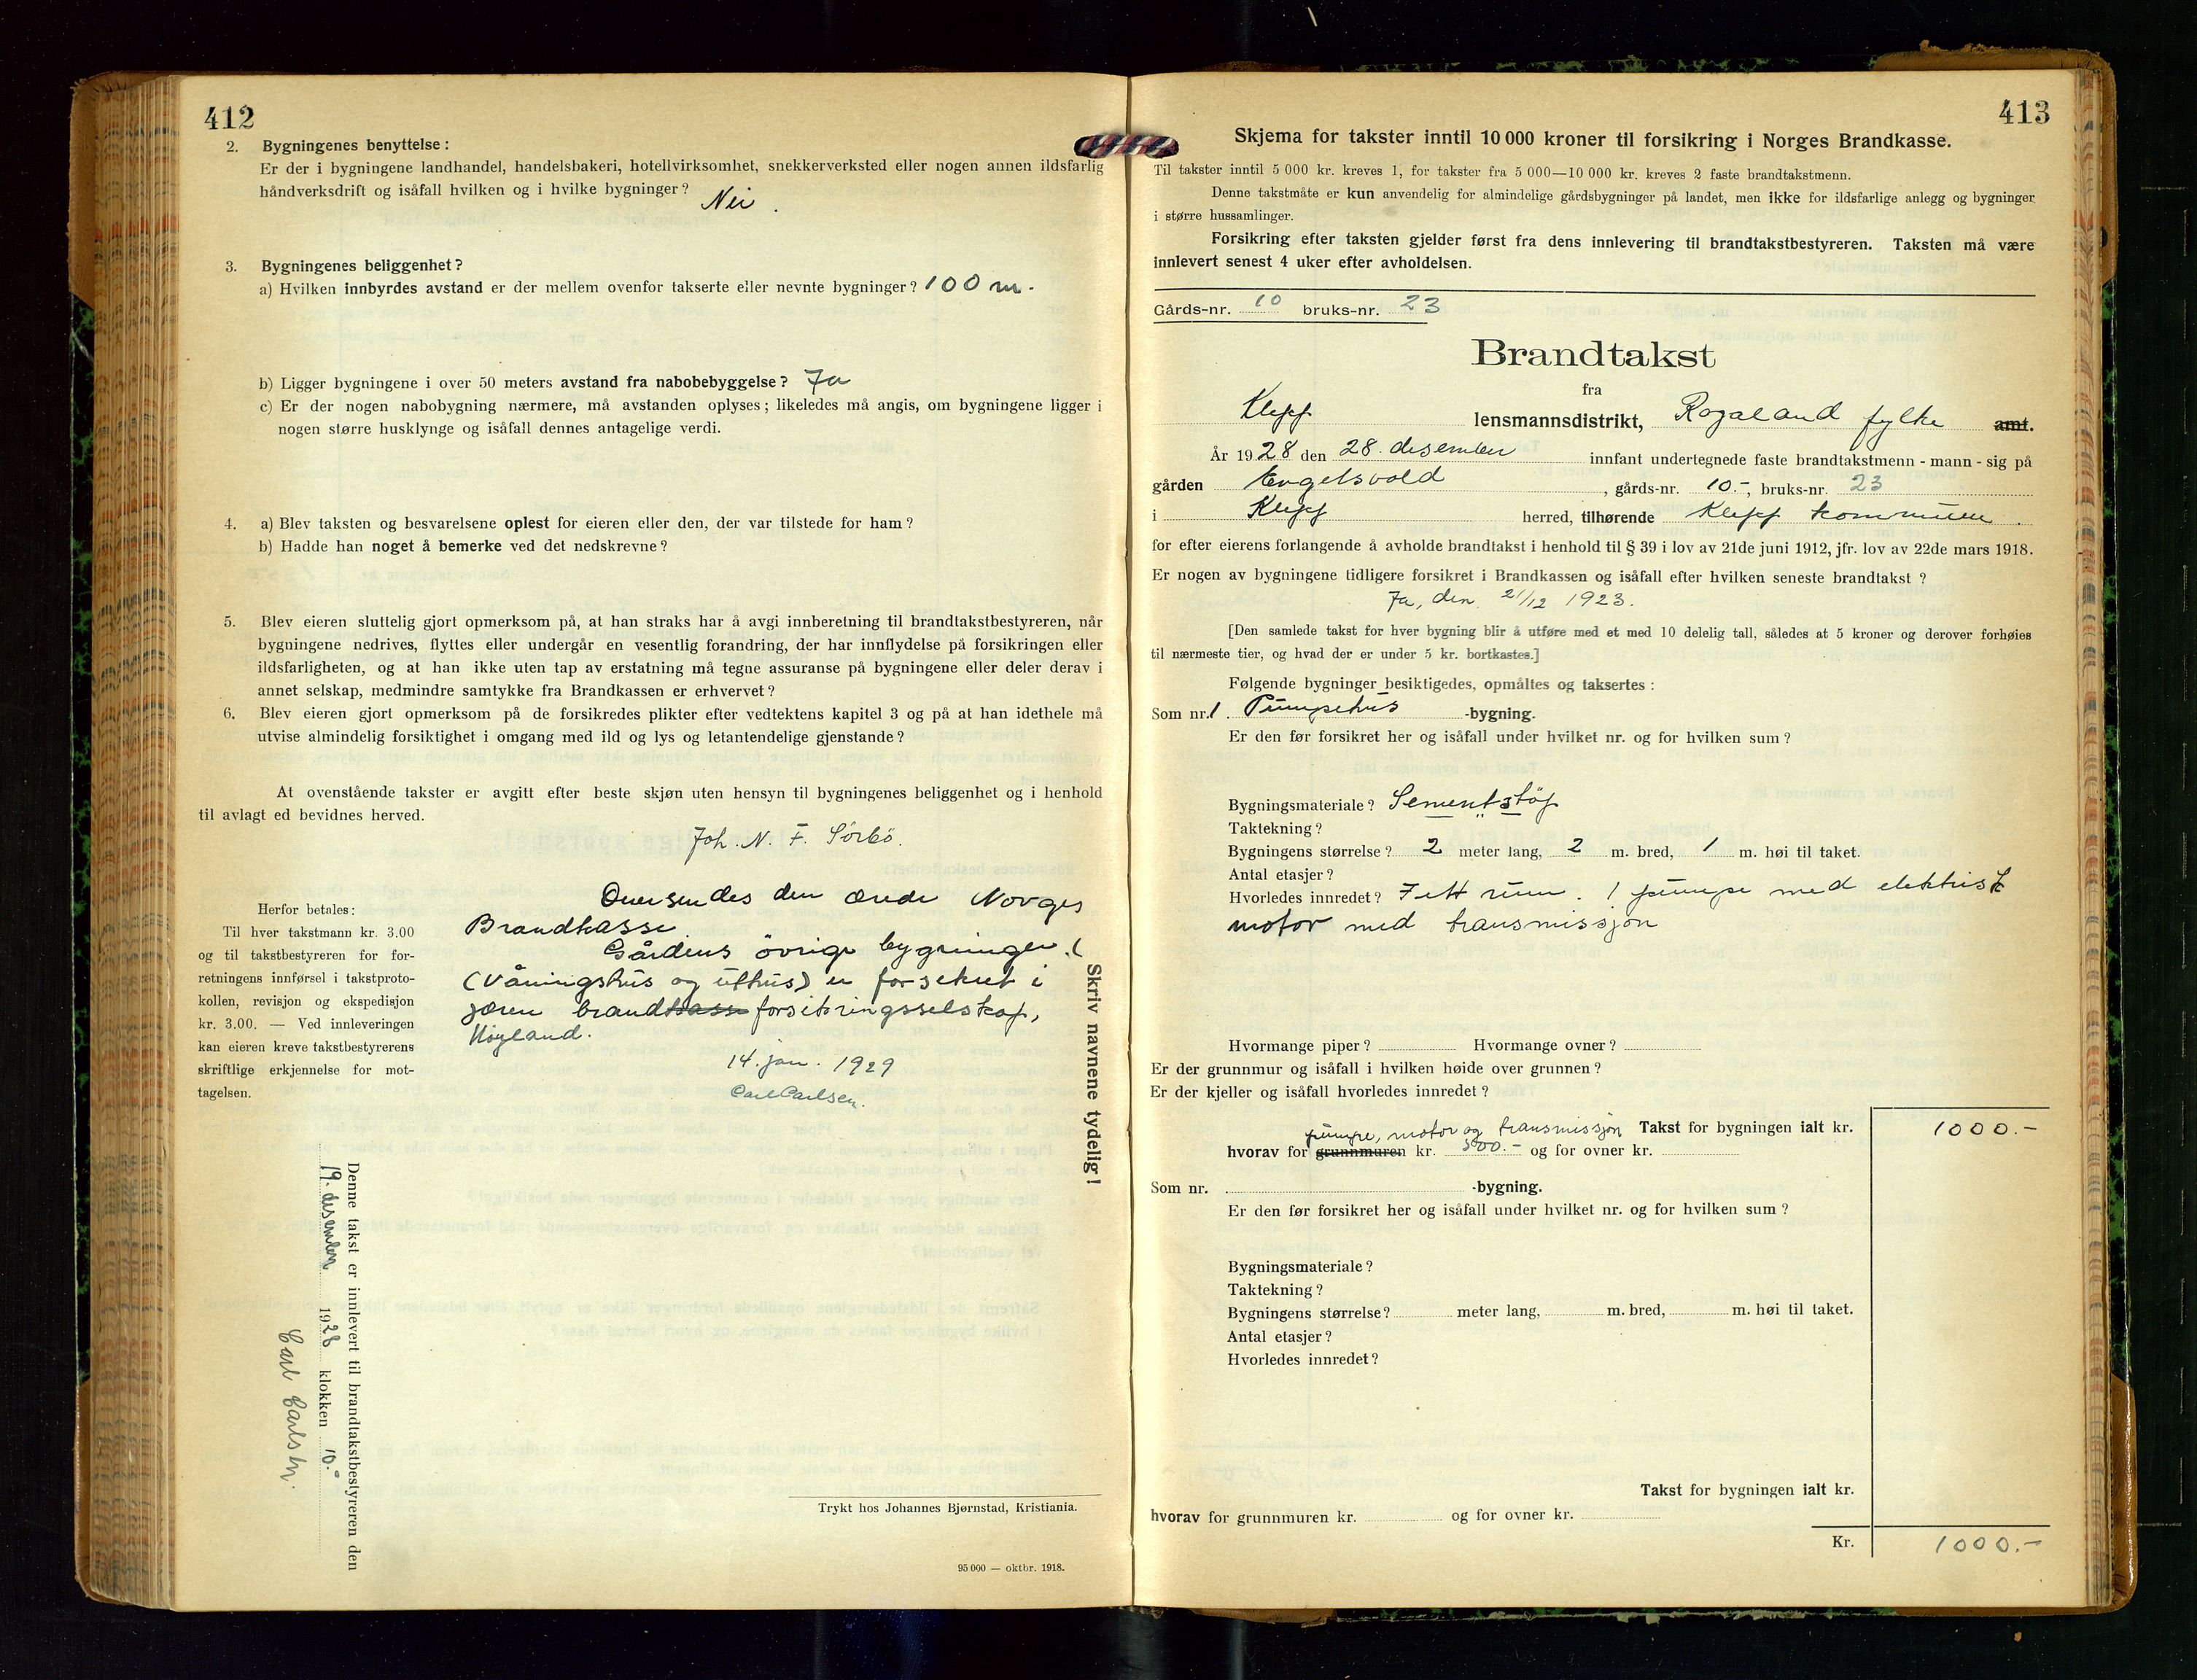 412
2. Bygningenes benyttelse:
Er der i bygningene landhandel, handelsbakeri, hotellvirksomhet, snekkerverksted eller nogen annen ildsfarlig
håndverksdrift og isåfall hvilken og i hvilke bygninger? Nei.
3. Bygningenes beliggenhet?
a) Hvilken innbyrdes avstand er der mellem ovenfor takserte eller nevnte bygninger? 100 m.
b) Ligger bygningene i over 50 meters avstand fra nabobebyggelse? Ja
c) Er der nogen nabobygning nærmere, må avstanden oplyses; likeledes må angis, om bygningene ligger i
nogen større husklynge og isåfall dennes antagelige verdi.
4. a) Blev taksten og besvarelsene oplest for eieren eller den, der var tilstede for ham?
b) Hadde han noget å bemerke ved det nedskrevne?
5. Blev eieren sluttelig gjort opmerksom på, at han straks har å avgi innberetning til brandtakstbestyreren, når
bygningene nedrives, flyttes eller undergår en vesentlig forandring, der har innflydelse på forsikringen eller
ildsfarligheten, og at han ikke uten tap av erstatning må tegne assuranse på bygningene eller deler derav i
annet selskap, medmindre samtykke fra Brandkassen er erhvervet?
6. Blev eieren gjort opmerksom på de forsikredes plikter efter vedtektens kapitel 3 og på at han idethele må
utvise almindelig forsiktighet i omgang med ild og lys og letantendelige gjenstande?
At ovenstående takster er avgitt efter beste skjøn uten hensyn til bygningenes beliggenhet og i henhold
til avlagt ed bevidnes herved.
Joh. N. F. Sörbö.
Oversendes den ærede Norges
Brandkasse.
Gårdens övrige bygninger
(våningshus og uthus) er forsekret i
Jæren brandkasse forsikringsselskap,
Höyland.
14. jan. 1929
Carl Carlsen.
Herfor betales:
Til hver takstmann kr. 3.00
og til takstbestyreren for for-
retningens innførsel i takstproto-
kollen, revisjon og ekspedisjon
kr. 3.00. — Ved innleveringen
kan eieren kreve takstbestyrerens
skriftlige erkjennelse for mot-
tagelsen.
Skriv navnene tydelig!
Denne takst er innlevert til brandtakstbestyreren den
19. desember 1928 klokken 10.-
Carl Carlsen.
Trykt hos Johannes Bjørnstad, Kristiania.
95 000 — oktbr. 1918.
413
Skjema for takster inntil 10 000 kroner til forsikring i Norges Brandkasse.
Til takster inntil 5 000 kr. kreves 1, for takster fra 5 000—10 000 kr. kreves 2 faste brandtakstmenn.
Denne takstmåte er kun anvendelig for almindelige gårdsbygninger på landet, men ikke for ildsfarlige anlegg og bygninger
i større hussamlinger.
Forsikring efter taksten gjelder først fra dens innlevering til brandtakstbestyreren. Taksten må være
innlevert senest 4 uker efter avholdelsen.
Gårds-nr. 10 bruks-nr. 23
Brandtakst
fra
Klepp lensmannsdistrikt, Rogaland fylke amt.
År 1928 den 28. desember innfant undertegnede faste brandtakstmenn - mann - sig på
gården Engelsvold, gårds-nr. 10.-, bruks-nr. 23
i Klepp herred, tilhørende Klepp kommune.
for efter eierens forlangende å avholde brandtakst i henhold til § 39 i lov av 21de juni 1912, jfr. lov av 22de mars 1918.
Er nogen av bygningene tidligere forsikret i Brandkassen og isåfall efter hvilken seneste brandtakst?
Ja, den 21/12 1923.
[Den samlede takst for hver bygning blir å utføre med et med 10 delelig tall, således at 5 kroner og derover forhøies
til nærmeste tier, og hvad der er under 5 kr. bortkastes.]
Følgende bygninger besiktigedes, opmåltes og taksertes:
Som nr. 1. Pumpehus -bygning.
Er den før forsikret her og isåfall under hvilket nr. og for hvilken sum?
Bygningsmateriale? Sementstöp
Taktekning?
Bygningens størrelse? 2 meter lang, 2 m. bred, 1 m. høi til taket.
Antal etasjer?
Hvorledes innredet? 7 ett rum. 1 pumpe med elektrisk
motor med transmissjon
Hvormange piper? Hvormange ovner?
Er der grunnmur og isåfall i hvilken høide over grunnen?
Er der kjeller og isåfall hvorledes innredet?
pumpe, motor og transmissjon Takst for bygningen ialt kr. 1000.-
hvorav for grunnmuren kr. 500.- og for ovner kr.
Som nr. -bygning.
Er den før forsikret her og isåfall under hvilket nr. og for hvilken sum?
Bygningsmateriale?
Taktekning?
Bygningens størrelse? meter lang, m. bred, m. høi til taket.
Antal etasjer?
Hvorledes innredet?
Takst for bygningen ialt kr.
hvorav for grunnmuren kr. og for ovner kr.
Kr. 1000.-